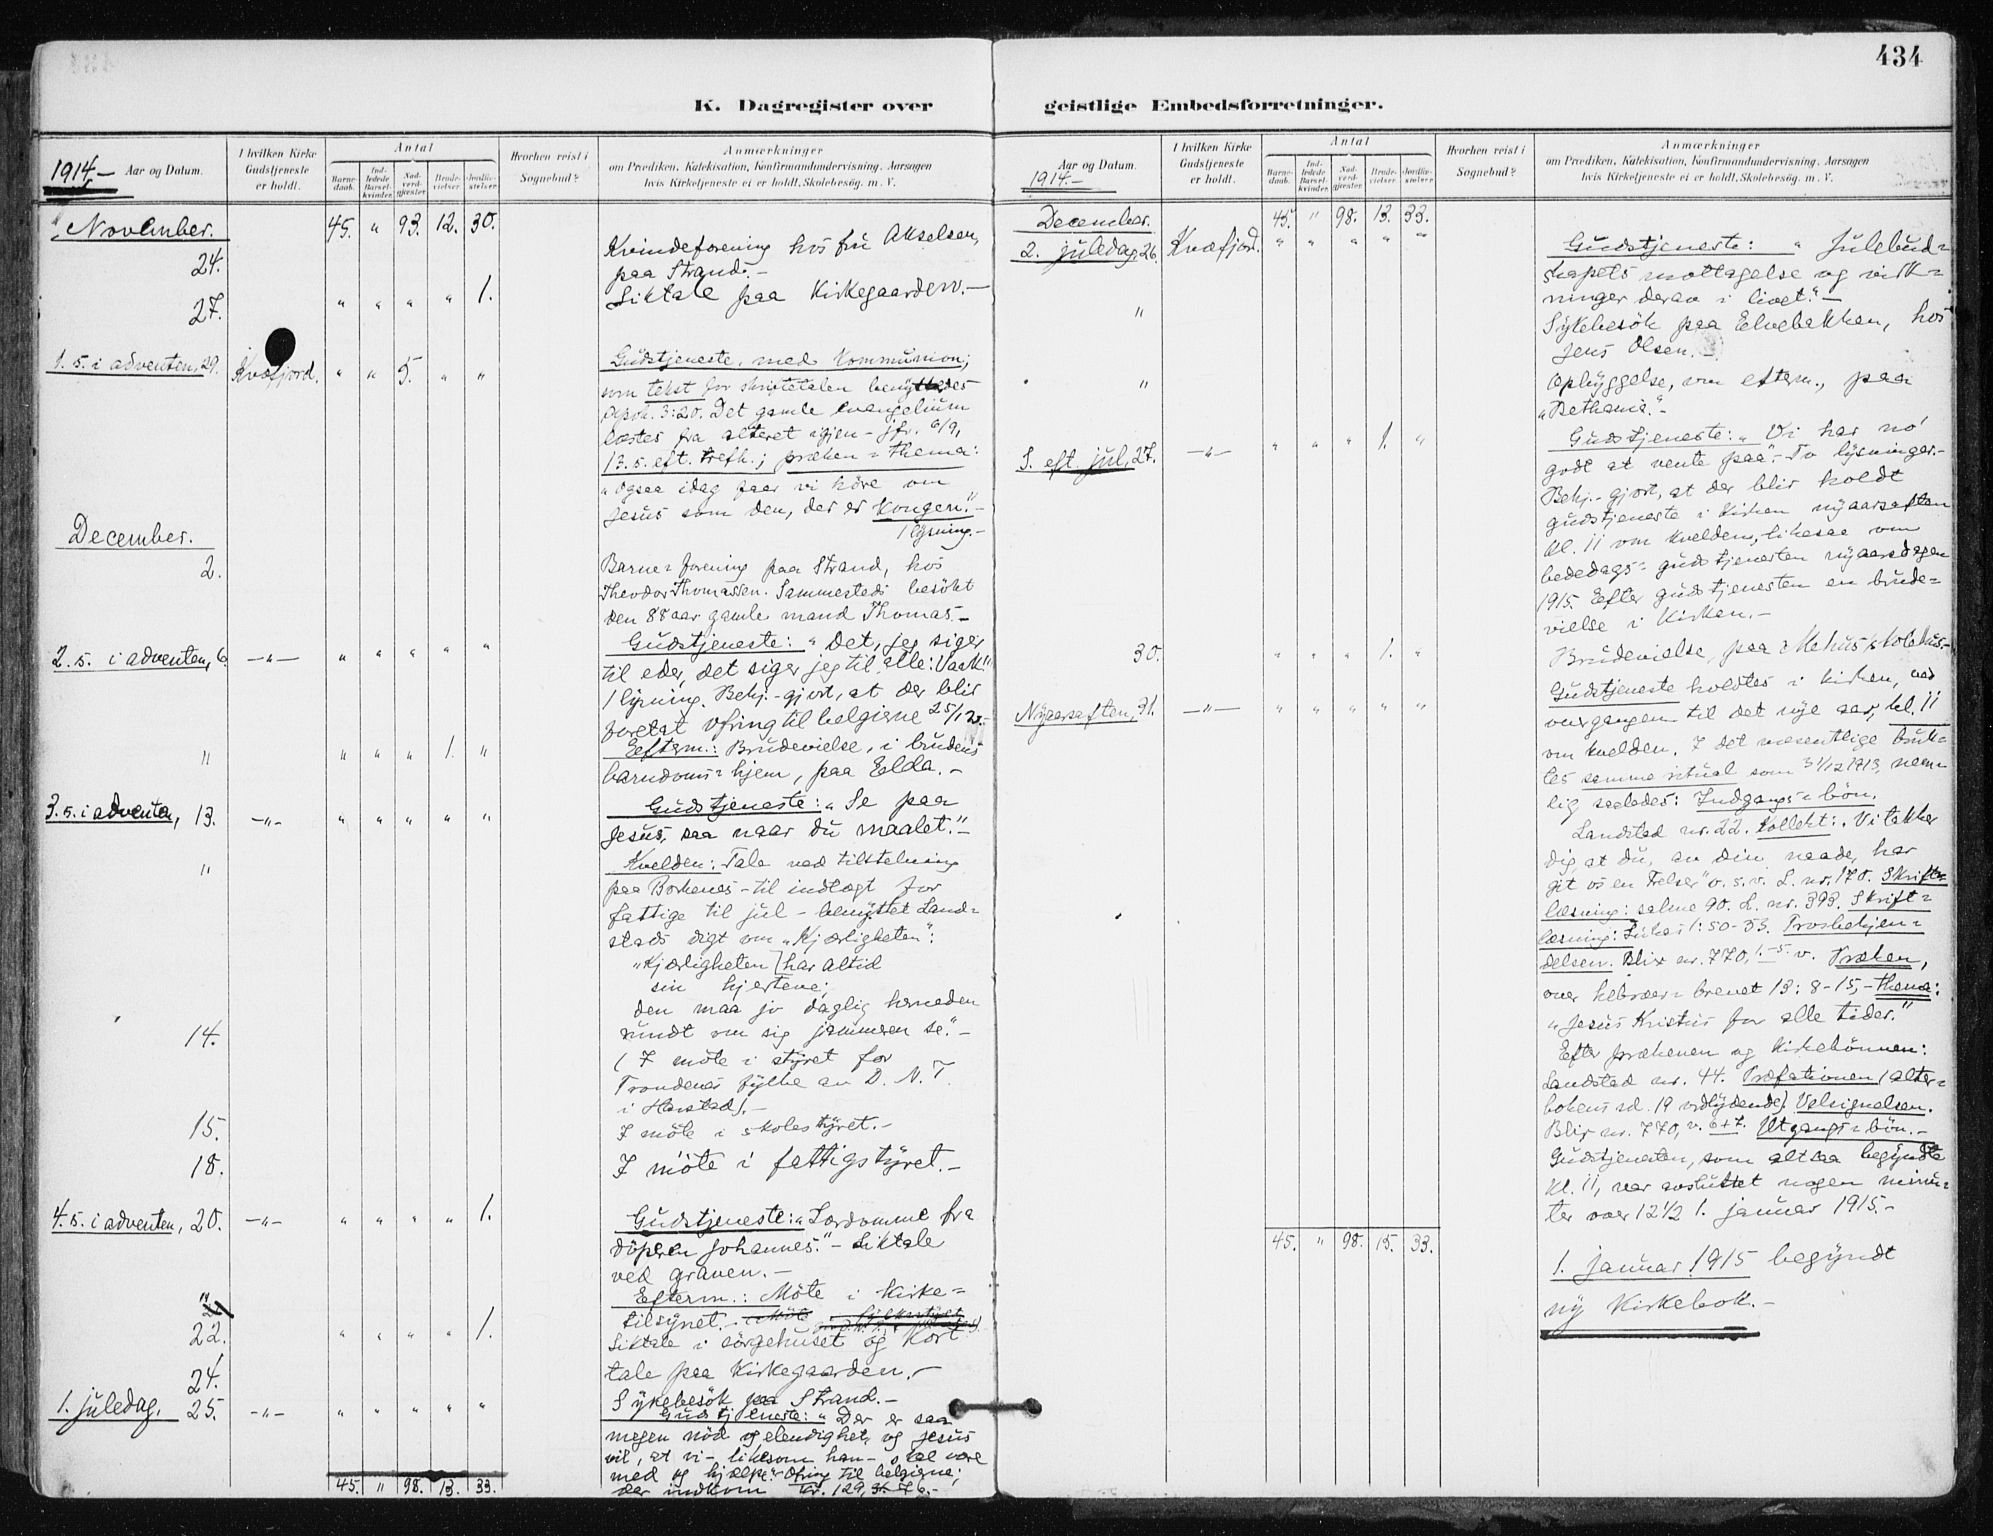 434
K. Dagregister over geistlige Embedsforretninger.
1914.- Aar og Datum.
I hvilken Kirke Gudstjeneste er holdt.
Antal
Barnedaab.
Indledede Barselkvinder.
Nadverdgjester.
Brudevielser.
Jordfæstelser.
Hvorhen reist i Sognebud?
Anmærkninger
om Prædiken, Katekisation, Konfirmandundervisning, Aarsagen
hvis Kirketjeneste ei er holdt, Skolebesøg, m. V.
November. 45. " 93. 12. 30.
24. Kvindeforening hos fru Akselsen,
paa Strand.-
27. " " " " 1. Liktale paa Kirkegaarden.-
1. s. i adventen, 29. Kvæfjord. " " 5. " " Gudstjeneste, med Kommunion;
som tekst for skriftetalen benyttedes
Apok. 3:20. Det gamle evangelium
læstes fra alteret igjen - jfr. 6/9,
13. s. eft. trefh.; præken = thema:
"Ogsaa idag faar vi høre om
Jesus som den, der er Kongen."-
1 lysning.-
December.
2. Barne = forening paa Strand, hos
Theodor Thomassen. Sammesteds besøkt
den 88 aar gamle mand Thomas.-
2. s. i adventen, 6. -"- " " " " " Gudstjeneste: "Det, jeg siger
til eder, det siger jeg til alle: Vaak!"
1 lysning. Bekj.-gjort, at der blir
foretat ofring til belgierne 25/12.-
" " " " 1. " Efterm.: Brudevielse, i brudens
barndoms = hjem, paa Elda.-
3. s. i adventen, 13. -"- " " " " " Gudstjeneste: "Se paa
Jesus, saa naar du maalet."-
" Kvelden: Tale ved tilstelning
paa Borkenes - til indtægt for
fattige til jul - benyttet Land=
stads digt om "Kjærligheten":
"Kjærligheten har altid
sin hjertene;
den maa jo daglig herneden
rundt om sig jammeren se."-
14. (I møte i styret for
Trondenes fylke av D. N. T.
i Harstad).-
15. I møte i skolestyret.-
18. I møte i fattigstyret.-
4. s. i adventen, 20. -"- " " " " 1. Gudstjeneste: "Lærdomme fra
døperen Johannes."- Liktale
ved graven.-
" Efterm.: Møte i Kirke=
tilsynet.-
22. " " " " 1. Liktale i sørgehuset og kort
tale paa Kirkegaarden.-
24. Sykebesøk paa Strand.-
1. juledag, 25. -"- " " " " " Gudstjeneste: "Der er saa
megen nød og elendighet, og Jesus
vil, at vi - likesom han - skal være
med og hjælpe." Ofring til belgierne;
der indkom kr. 129,76.-
45. " 98. 13. 33.
Aar og Datum.
1914.-
I hvilken Kirke Gudstjeneste er holdt.
Antal
Barnedaab.
Indledede Barselkvinder.
Nadverdgjester.
Brudevielser.
Jordfæstelser.
Hvorhen reist i Sognebud?
Anmærkninger
om Prædiken, Katekisation, Konfirmandundervisning, Aarsagen
hvis Kirketjeneste ei er holdt, Skolebesøg, m. V.
December. 45. " 98. 13. 33.
2. juledag, 26. Kvæfjord. " " " " " Gudstjeneste: "Julebud=
skapets mottagelse og virk=
ninger derav i livet."-
" Sykebesøk paa Elvebakken, hos
Jens Olsen.-
" Opbyggelse, om efterm., paa
"Bethania."-
S. eft. jul, 27. -"- " " " 1. " Gudstjeneste: "Vi har no'
godt at vente paa".- To lysninger.-
Bekj.-gjort, at der blir holdt
gudstjeneste i kirken nyaarsaften
kl. 11 om kvelden, likesaa om
bededags = gudstjenesten nyaarsdagen
1915. Efter gudstjenesten en brude=
vielse i kirken.-
30. " " " 1. " Brudevielse, paa Mehus skolehus.-
Nyaarsaften, 31. -"- " " " " " Gudstjeneste holdtes i kirken, ved
overgangen til det nye aar, kl. 11
om kvelden. I det væsentlige bruk=
tes samme ritual som 31/12 1913, nem=
lig saaledes: Indgangs = bøn.
Landstad nr. 22. Kollekt: "Vi takker
dig, at du, av din naade, har
git os en Frelser" o. s. v. L. nr. 170. Skrift=
læsning: salme 90. L. nr. 393. Skrift=
læsning: Lukas 1:50-53. Trosbekjen=
delsen. Blix nr. 770, 1-5 v. Præken,
over hebræer = brevet 13: 8-15, - thema:
"Jesus Kristus for alle tider."
Efter prækenen og kirkebønnen:
Landstad nr. 44. Præfationen (alter=
bokens sd. 19 ordlydende). Velsignelsen.
Blix nr. 770, v. 6+7. Utgangs = bøn.-
Gudstjenesten, som altsaa begyndte
kl. 11, var avsluttet nogen minut=
ter over 12 1/2 1. januar 1915.-
45. " 98. 15. 33.
1. januar 1915 begyndt
ny Kirkebok.-